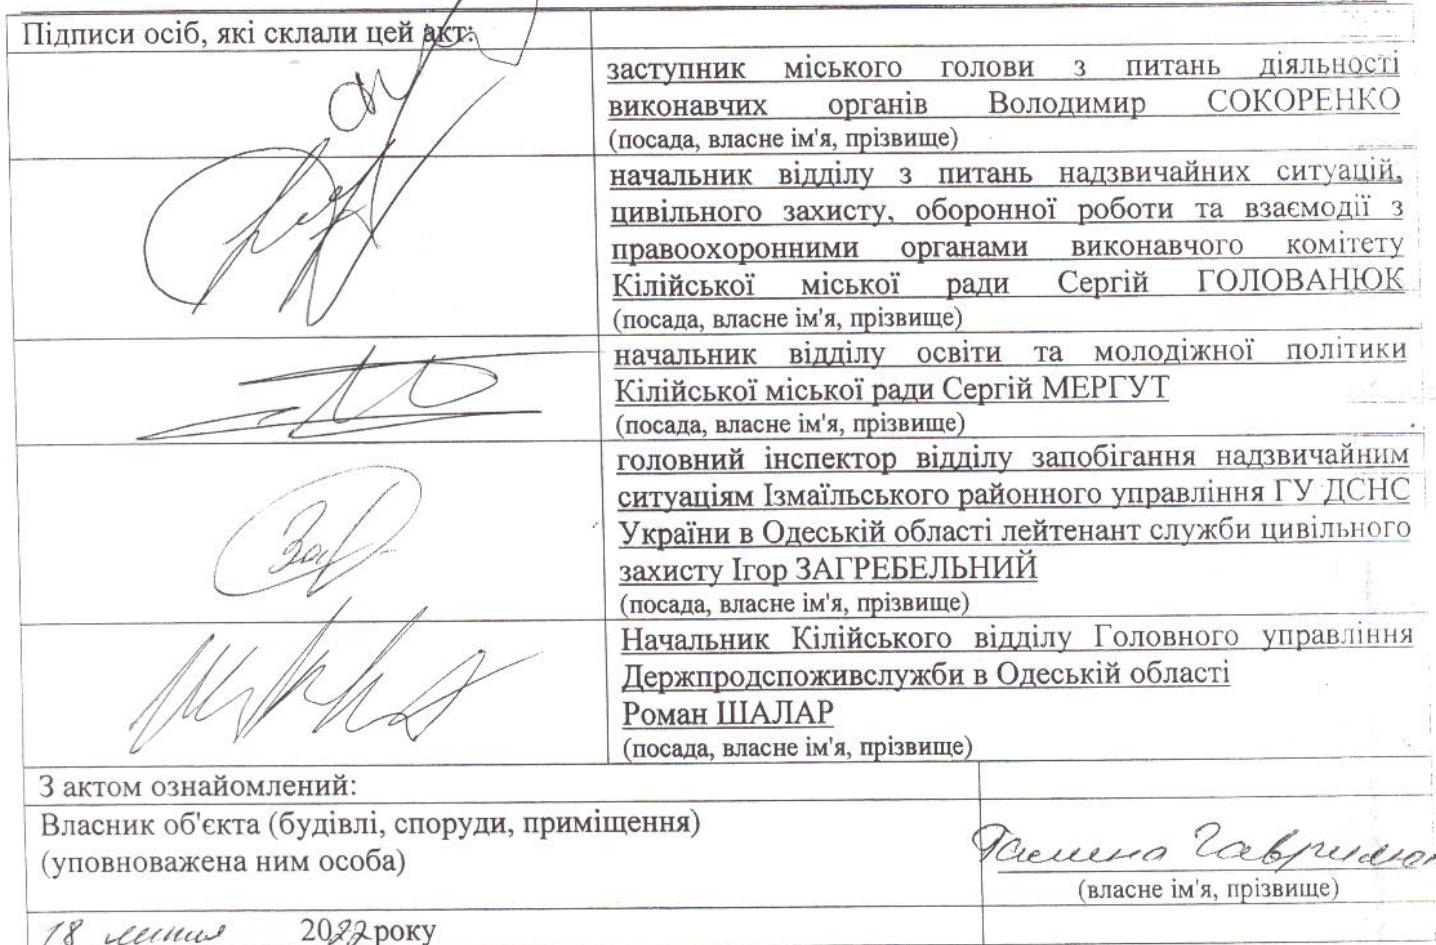 Підписи осіб, які склали цей акт:
заступник міського голови з питань діяльності
виконавчих органів Володимир СОКОРЕНКО
(посада, власне ім'я, прізвище)
начальник відділу з питань надзвичайних ситуацій,
цивільного захисту, оборонної роботи та взаємодії з
правоохоронними органами виконавчого комітету
Кілійської міської ради Сергій ГОЛОВАНЮК
(посада, власне ім'я, прізвище)
начальник відділу освіти та молодіжної політики
Кілійської міської ради Сергій МЕРГУТ
(посада, власне ім'я, прізвище)
головний інспектор відділу запобігання надзвичайним
ситуаціям Ізмаїльського районного управління ГУ ДСНС
України в Одеській області лейтенант служби цивільного
захисту Ігор ЗАГРЕБЕЛЬНИЙ
(посада, власне ім'я, прізвище)
Начальник Кілійського відділу Головного управління
Держпродспоживслужби в Одеській області
Роман ШАЛАР
(посада, власне ім'я, прізвище)
З актом ознайомлений:
Власник об'єкта (будівлі, споруди, приміщення)
(уповноважена ним особа)
Галина Гаврилюк
(власне ім'я, прізвище)
18 липня 2022 року